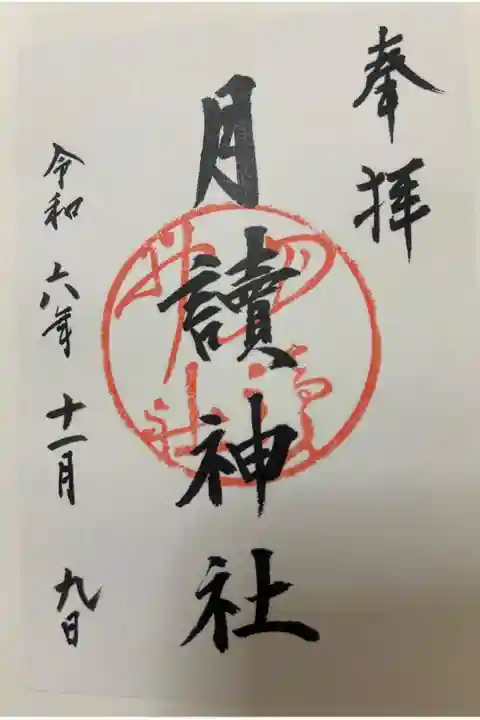 奉拝
月讀神社
令和六年十一月九日